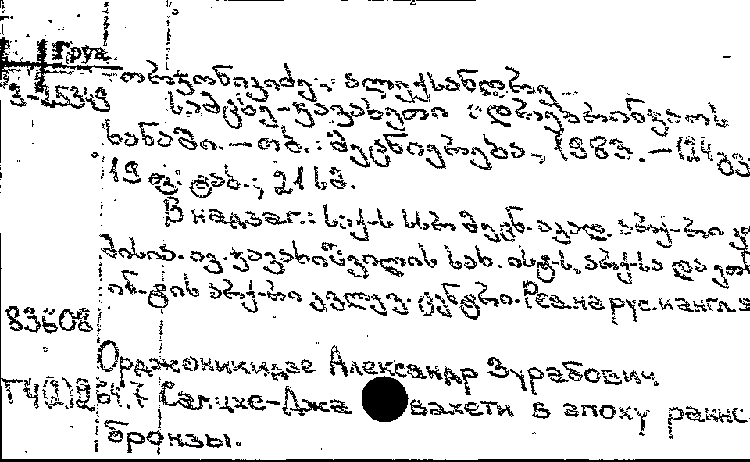 Груз
3-4543 ორჯონიკიძე, ალექსანდრე
სამცხე-ჯავახეთი ადრებრინჯაოს
ხანაში. — თბ.: მეცნიერება, 1983. — 124 გვ
19 ფ. ტაბ.; 21 სმ.
В надзаг.: საქ-ს სსრ მეცნ. აკად. არქ-რი კო
მისია. ივ. ჯავახიშვილის სახ. ისტ-ს, არქ-სა და ეთ
ინ-ტის არქ-რი კვლევ. ცენტრი. Рез. на рус. и англ. яз
83608
Орджоникидзе Александр Зурабович
Самцхе-Джа вахети в эпоху ранне
бронзы.